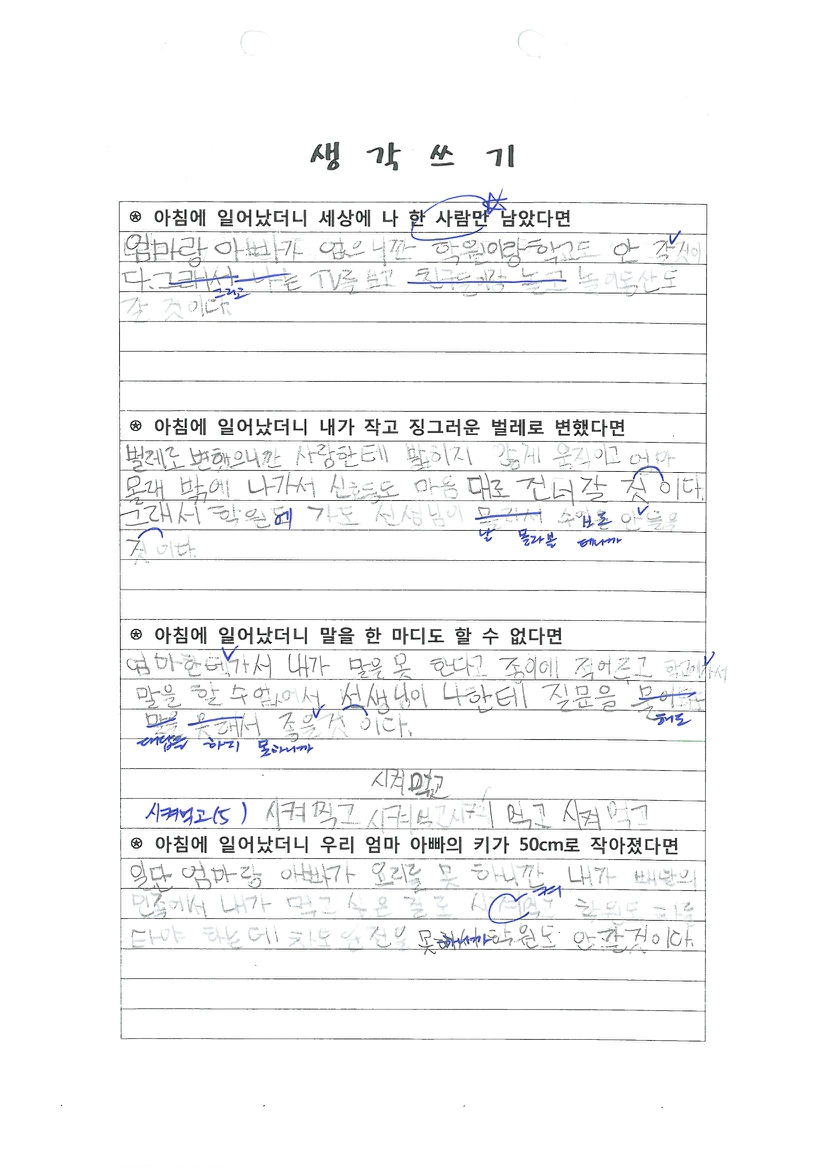 생 각 쓰 기
아침에 일어났더니 세상에 나 한 사람만 남았다면
엄마랑 아빠가 없으니깐 학원이랑 학교도 안 갈 것이
다. 그래서 나는 TV를 보고 친구들이랑 놀고 놀이동산도
그리고
갈 것이다.
아침에 일어났더니 내가 작고 징그러운 벌레로 변했다면
벌레로 변했으니깐 사람한테 밟히지 않게 움직이고 엄마
몰래 밖에 나가서 신호등도 마음 대로 건너갈 것 이다.
그래서 학원에 가도 선생님이 몰라서 수업은 안들을
날 몰라볼 테니까
것 이다.
아침에 일어났더니 말을 한 마디도 할 수 없다면
엄마한테가서 내가 말을 못 한다고 종이에 적어주고 학교에가서
말을 할 수 없어서 선생님이 나한테 질문을
해도
말을 못해서 좋을 것 이다.
대답을 하지 못하니까
시켜 먹고
시켜먹고(5) 시켜 먹고 시켜 먹고 시켜 먹고 시켜 먹고
아침에 일어났더니 우리 엄마 아빠의 키가 50cm로 작아졌다면
일단 엄마랑 아빠가 요리를 못 하니깐 내가 배달의
켜
민족에서 내가 먹고 싶은 걸로 시켜먹고 학원도 차를
타야 하는 데 차도 운전을 못하니까 학원도 안 갈 것이다.